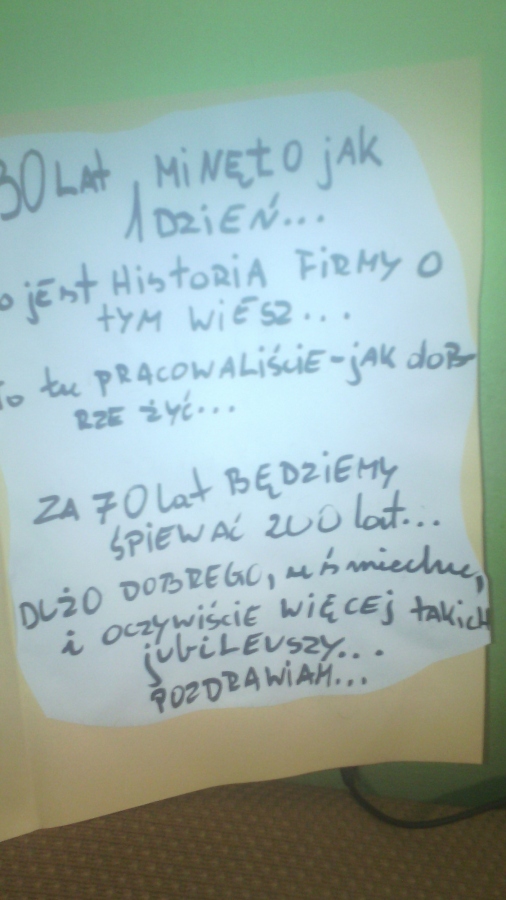 30 LAT MINĘŁO jAK
1 DZIEŃ...
o jEst HistoRIA FiRMY O
tYM WiESZ...
To tu PRACOWALiŚciE-jAK doB-
RZE ŻYĆ...
ZA 70 lat BĘDZiEMY
ŚPIEWAĆ 200 lat...
DUŻO DOBREGO, uśmiechu,
i OCZYWIŚCIE WIĘCEj takich
jubiLEUSZY...
POZDRAWIAM...